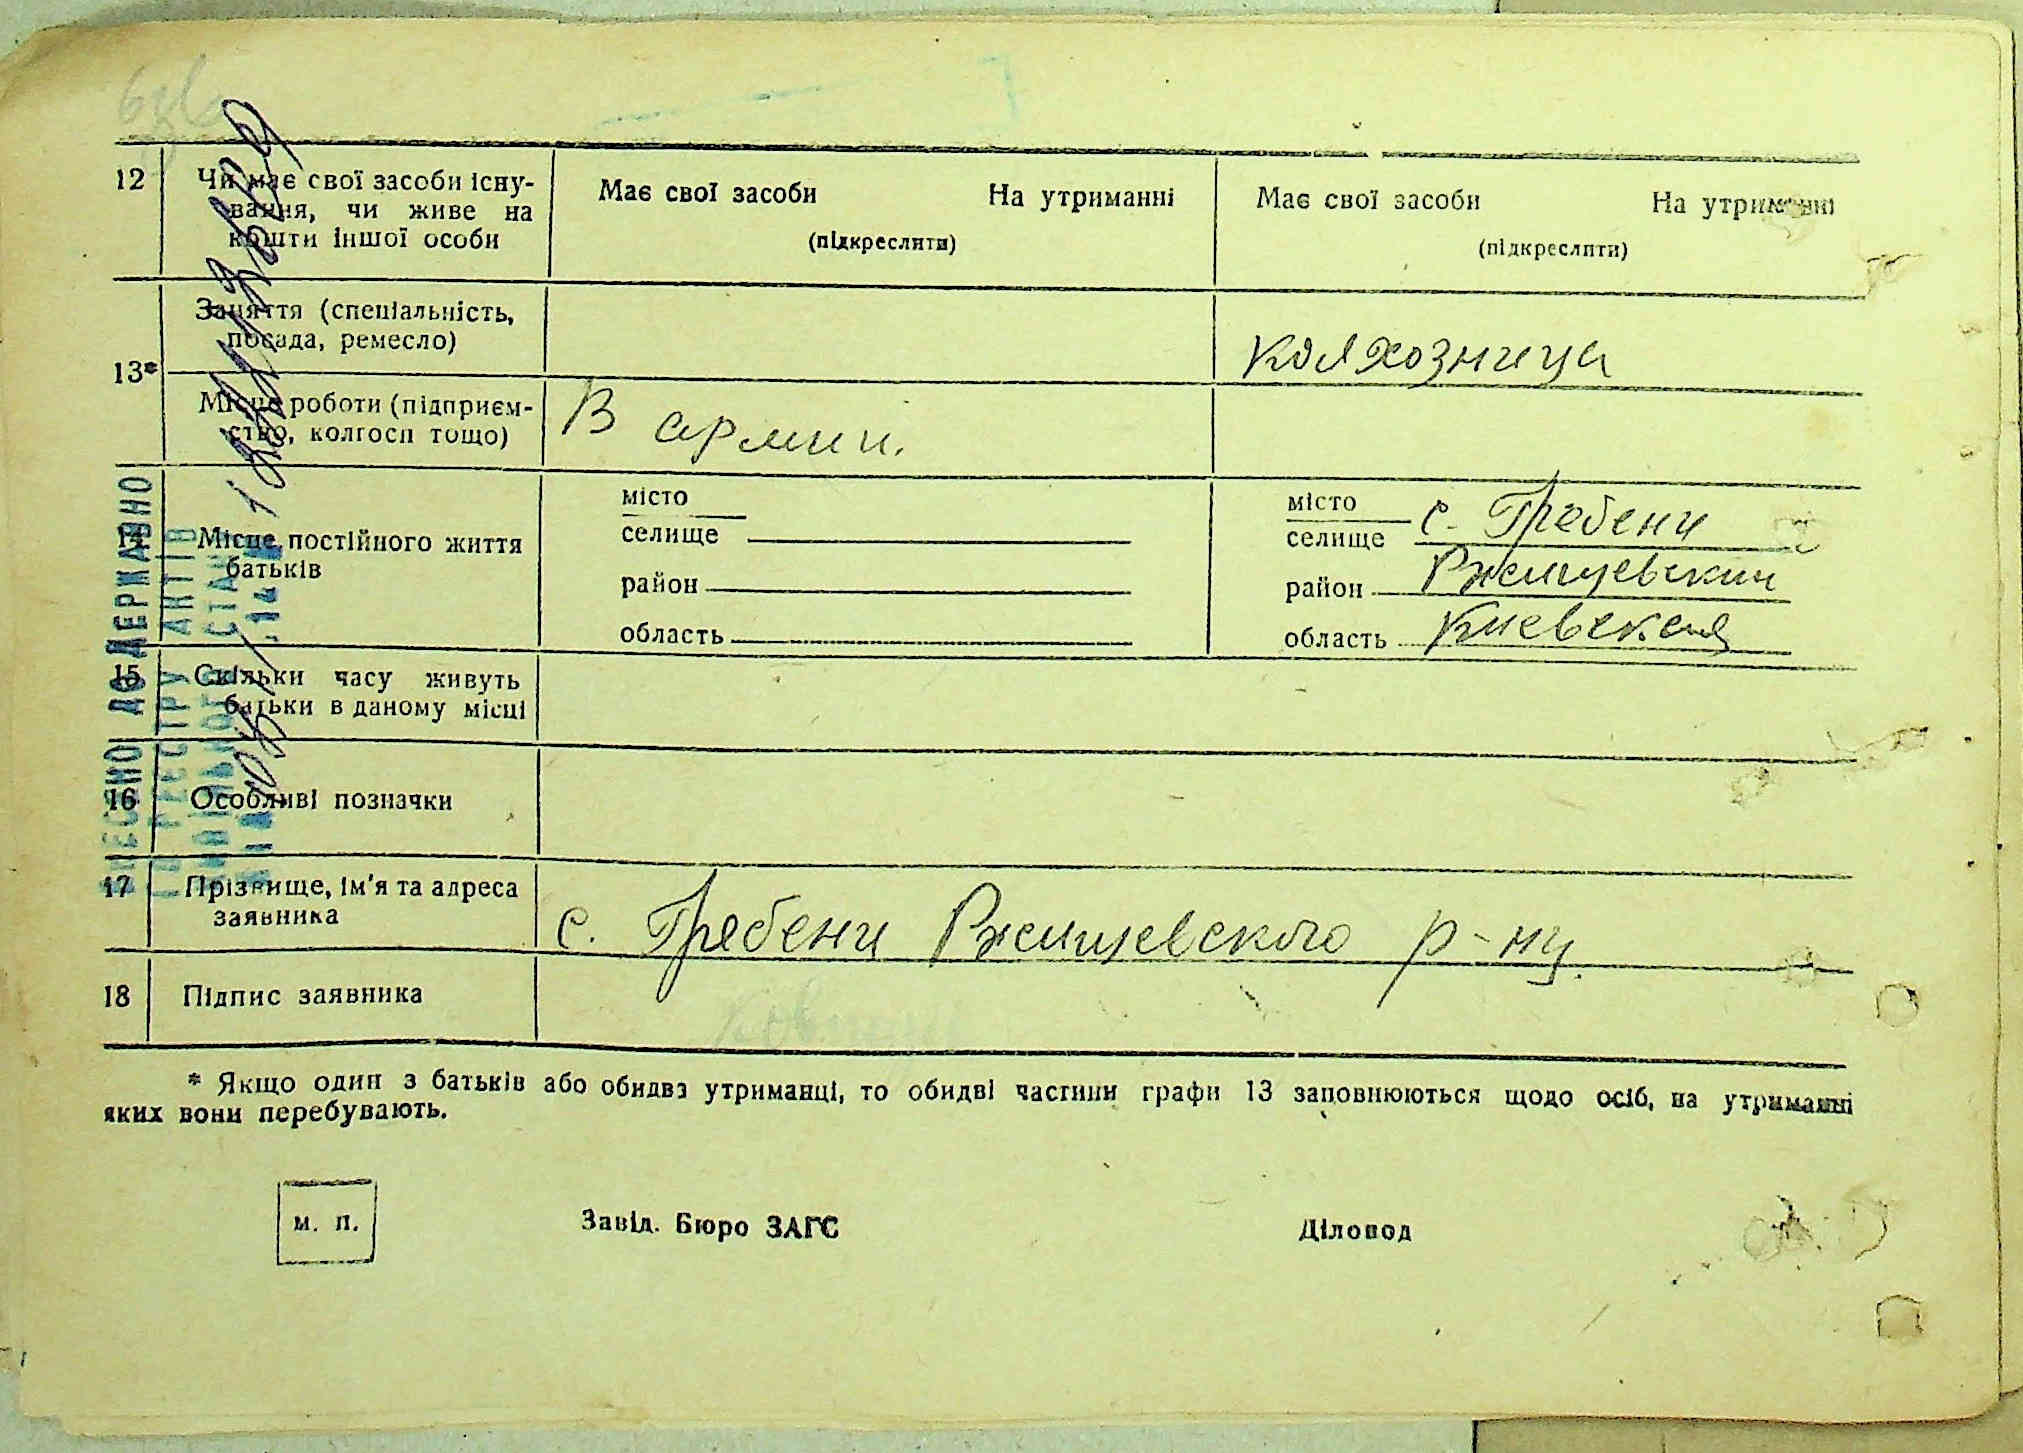 12 Чи має свої засоби існу-
вання, чи живе на
кошти іншої особи
Має свої засоби На утриманні
(підкреслити)
Має свої засоби На утриманні
(підкреслити)
13*
Заняття (спеціальність,
посада, ремесло)
колхозница
Місце роботи (підприєм-
ство, колгосп тощо)
В армии.
14 Місце постійного життя
батьків
місто
селище
район
область
місто
селище с. Гребени
район Ржищевский
область Киевская
15 Скільки часу живуть
батьки в даному місці
16 Особливі позначки
17 Прізвище, ім'я та адреса
заявника
с. Гребени Ржищевского р-ну.
18 Підпис заявника
* Якщо один з батьків або обидва утриманці, то обидві частини графи 13 заповнюються щодо осіб, на утриманні
яких вони перебувають.
м. п. Завід. Бюро ЗАГС Діловод
ВНЕСЕНО ДО ДЕРЖАВНО
ГО РЕЄСТРУ АКТІВ
СТАНУ